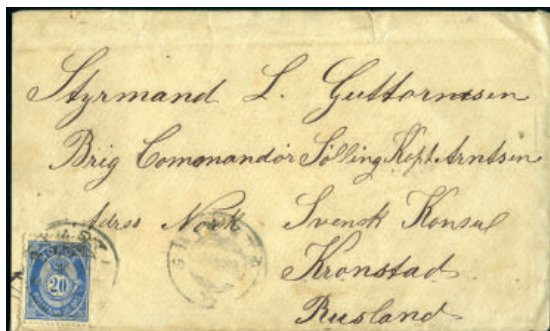 Styrmand L. Guttormsen
Brig Comonandör Sölling Kapt Arntsen
Adrss Norsk Svensk Konsul
Kronstad
Rusland
20